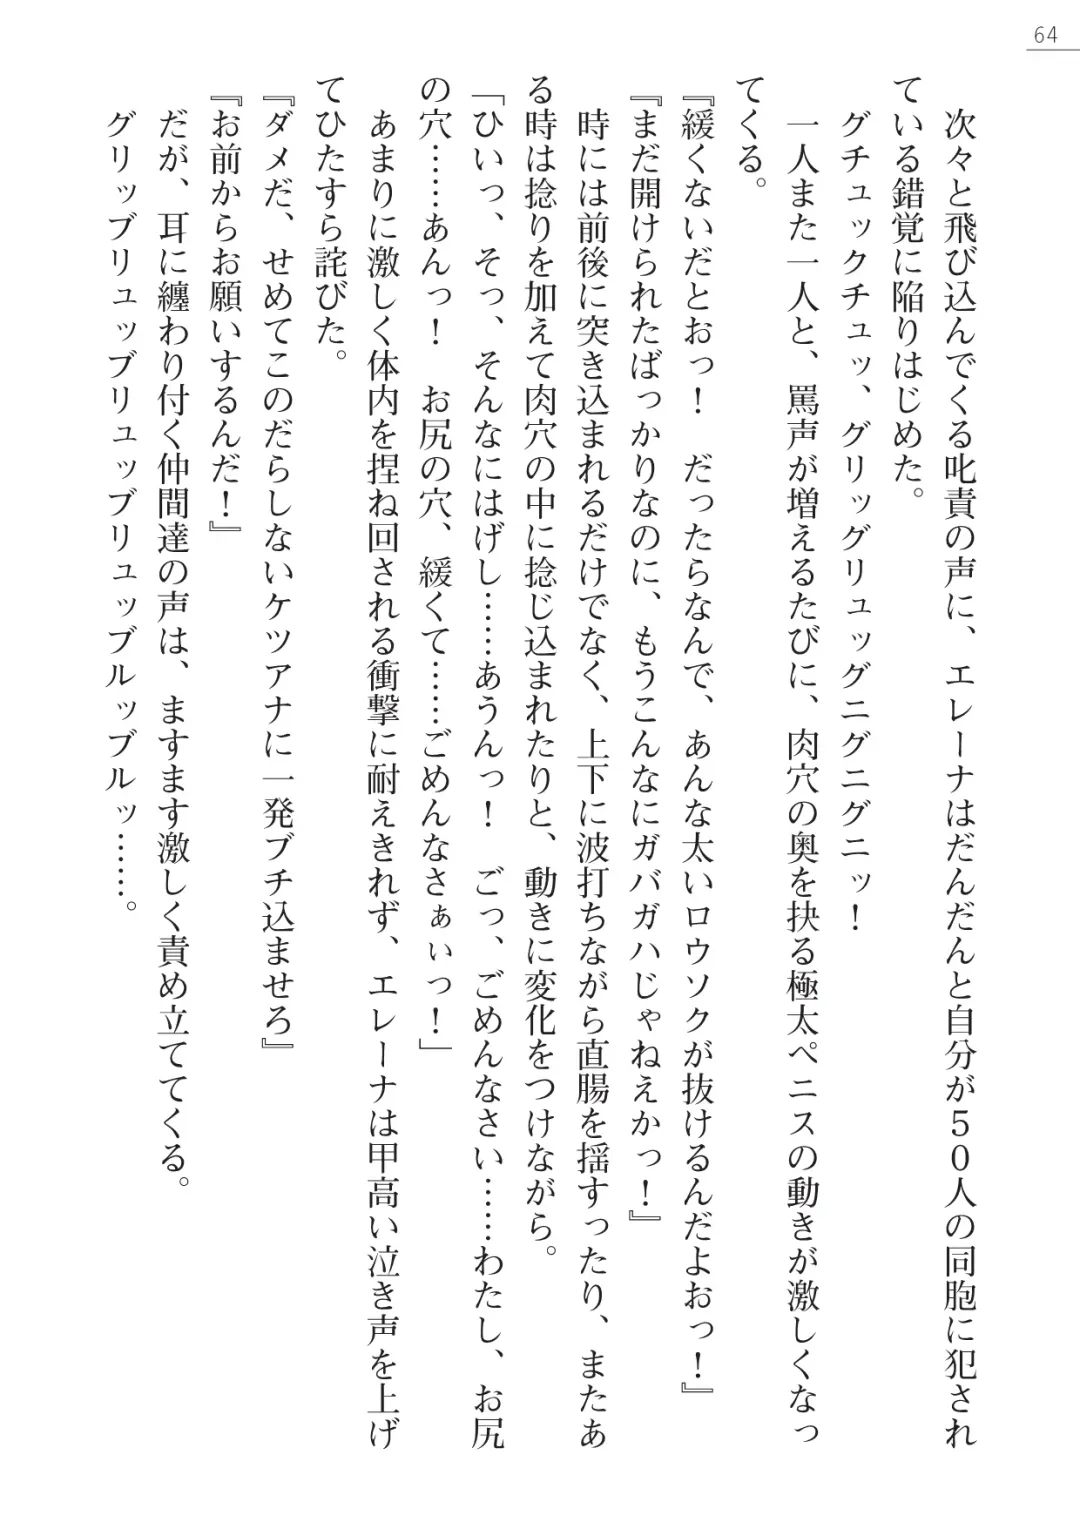 64
次々と飛び込んでくる叱責の声に、エレーナはだんだんと自分が50人の同胞に犯され
ている錯覚に陥りはじめた。
グチュックチュッ、グリッグリュッグニグニグニッ！
一人また一人と、罵声が増えるたびに、肉穴の奥を抉る極太ペニスの動きが激しくなっ
てくる。
『緩くないだとおっ！　だったらなんで、あんな太いロウソクが抜けるんだよおっ！』
『まだ開けられたばっかりなのに、もうこんなにガバガハじゃねえかっ！』
時には前後に突き込まれるだけでなく、上下に波打ちながら直腸を揺すったり、またあ
る時は捻りを加えて肉穴の中に捻じ込まれたりと、動きに変化をつけながら。
「ひいっ、そっ、そんなにはげし……あうんっ！　ごっ、ごめんなさい……わたし、お尻
の穴……あんっ！　お尻の穴、緩くて……ごめんなさぁぃっ！」
あまりに激しく体内を捏ね回される衝撃に耐えきれず、エレーナは甲高い泣き声を上げ
てひたすら詫びた。
『ダメだ、せめてこのだらしないケツアナに一発ブチ込ませろ』
『お前からお願いするんだ！』
だが、耳に纏わり付く仲間達の声は、ますます激しく責め立ててくる。
グリップリュップリュップリュッブルッブルッ……。